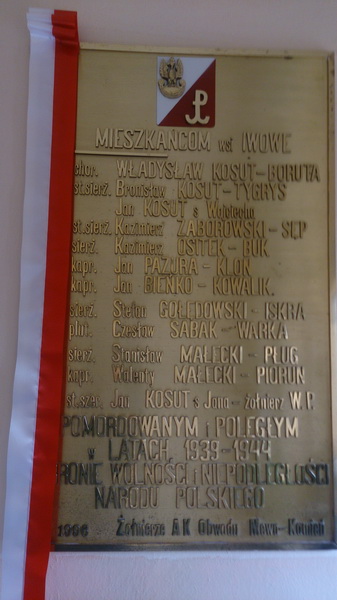 MIESZKAŃCOM wsi IWOWE
chor. WŁADYSŁAW KOSUT-BORUTA
st.sierż. Bronisław KOSUT-TYGRYS
Jan KOSUT s Wojciecha
st.sierż. Kazimierz ZABOROWSKI-SĘP
sierż. Kazimierz OSITEK-BUK
knpr. Jan PAZURA-KLON
knpr. Jan BIENKO-KOWALIK.
sierż. Stefan GOŁĘDOWSKI-ISKRA
plut. Czesław SABAK-WARKA
sierż. Stanisław MAŁECKI-PŁUG
knpr. Walenty MAŁECKI-PIORUN
st.szer. Jan KOSUT s Jana-żołnierz W.P.
POMORDOWANYM i POLEGŁYM
w LATACH 1939-1944
RONIE WOLNOŚCI i NIEPODLEGŁOŚCI
NARODU POLSKIEGO
1996 Żołnierze AK Obwodu Mewa-Kamień